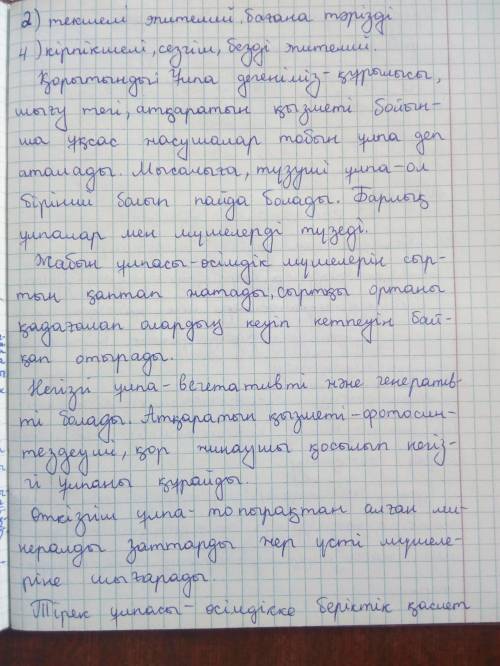 2) текшелі эпителий, бағана тәрізді
4) кірпікшелі, сезгіш, безді эпителий.
Қорытынды: Ұлпа дегеніміз - құрылысы,
шығу тегі, атқаратын қызметі бойын-
ша ұқсас жасушалар тобын ұлпа деп
аталады. Мысалыға, түзуші ұлпа - ол
бірінші болып пайда болады. Барлық
ұлпалар мен мүшелерді түзеді.
Жабын ұлпасы - өсімдік мүшелерін сыр-
тын қаптап жатады, сыртқы ортаны
қадағалап олардың кеуіп кетпеуін бай-
қап отырады.
Негізгі ұлпа - вегетативті және генератив-
ті болады. Атқаратын қызметі - фотосин-
тездеуші, қор жинаушы қосылып негіз-
гі ұлпаны құрайды.
Өткізгіш ұлпа - топырақтан алған ми-
нералды заттарды жер үсті мүшеле-
ріне шығарады.
Тірек ұлпасы - өсімдікке беріктік қасиет